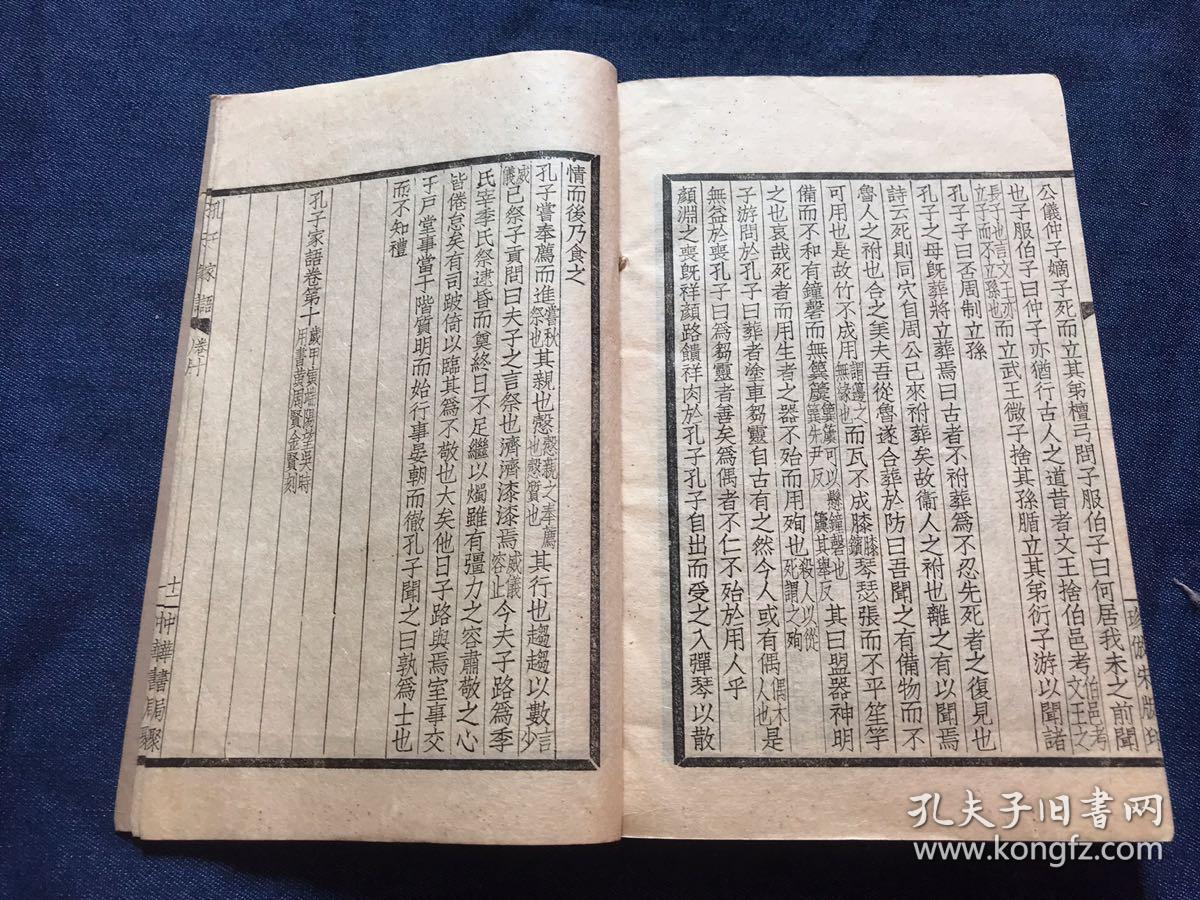 公儀仲子嫡子死而立其弟檀弓問子服伯子曰何居我未之前聞
也子服伯子曰仲子亦猶行古人之道昔者文王捨伯邑考伯邑考文王之
長子也言文王亦立子而不立孫也而立武王微子捨其孫腯立其弟衍子游以聞諸
孔子曰否周制立孫
孔子之母旣葬將立葬焉曰古者不祔葬爲不忍先死者之復見也
詩云死則同穴自周公已來祔葬矣故衞人之祔也離之有以聞焉
魯人之祔也合之美夫吾從魯遂合葬於防曰吾聞之有備物而不
可用也是故竹不成用謂籩之無緣也而瓦不成膝膝鑌琴瑟張而不平笙竽
備而不和有鐘磬而無簨簴簨簴可以懸鐘磬也簨先尹反簴其舉反其曰盟器神明
之也哀哉死者而用生者之器不殆而用殉也殺人以從死謂之殉
子游問於孔子曰葬者塗車芻靈自古有之然今人或有偶偶木人也是
無益於喪孔子曰爲芻靈者善矣爲偶者不仁不殆於用人乎
顏淵之喪旣祥顏路饋祥肉於孔子孔子自出而受之入彈琴以散
情而後乃食之
孔子嘗奉薦而進嘗秋祭也其親也慤慤親之奉薦也慤質也其行也趨趨以數言少
威儀已祭子貢問曰夫子之言祭也濟濟漆漆焉威儀容止今夫子路爲季
氏宰季氏祭逮昏而奠終日不足繼以燭雖有彊力之容肅敬之心
皆倦怠矣有司跛倚以臨其爲不敬也大矣他日子路與焉室事交
于戶堂事當于階質明而始行事晏朝而徹孔子聞之曰孰爲士也
而不知禮
孔子家語卷第十歲甲寅端陽望吳時用書黃周賢金賢刻
孔子家語
卷十
十一
中華書局聚
珍倣宋版印
孔夫子旧书网
www.kongfz.com